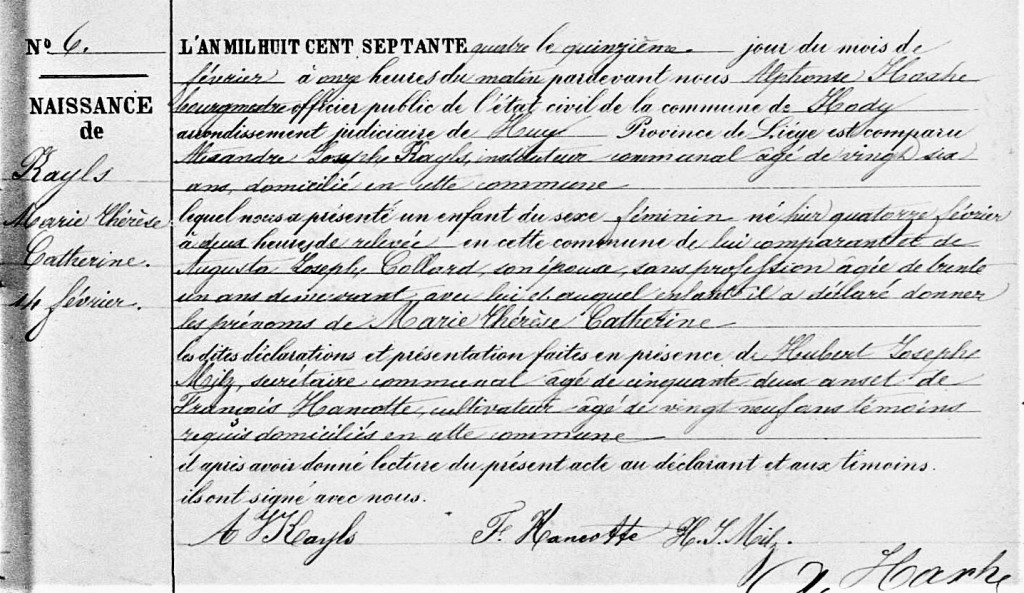 N° 6.
NAISSANCE
de
Kayls
Marie Thérèse
Catherine.
14 février.
L'AN MIL HUIT CENT SEPTANTE quatre le quinzième jour du mois de
février à onze heures du matin pardevant nous Alphonse
bourgmestre officier public de l'état civil de la commune de Hody
arrondissement judiciaire de Huy Province de Liége est comparu
Alexandre Joseph Kayls, instituteur communal âgé de vingt six
ans, domicilié en cette commune
lequel nous a présenté un enfant du sexe féminin né hier quatorze février
à deux heures de relevée en cette commune de lui comparant et de
Augusta Joseph Collard, son épouse, sans profession âgée de trente
un ans demeurant avec lui et auquel enfant il a déclaré donner
les prénoms de Marie Thérèse Catherine
les dites déclarations et présentation faites en présence de Hubert Joseph
Milz, secrétaire communal âgé de cinquante deux ans et de
François Hancotte, cultivateur âgé de vingt neuf ans témoins
requis domiciliés en cette commune
et après avoir donné lecture du présent acte au déclarant et aux témoins.
ils ont signé avec nous.
A J Kayls F. Hancotte H. J. Milz.